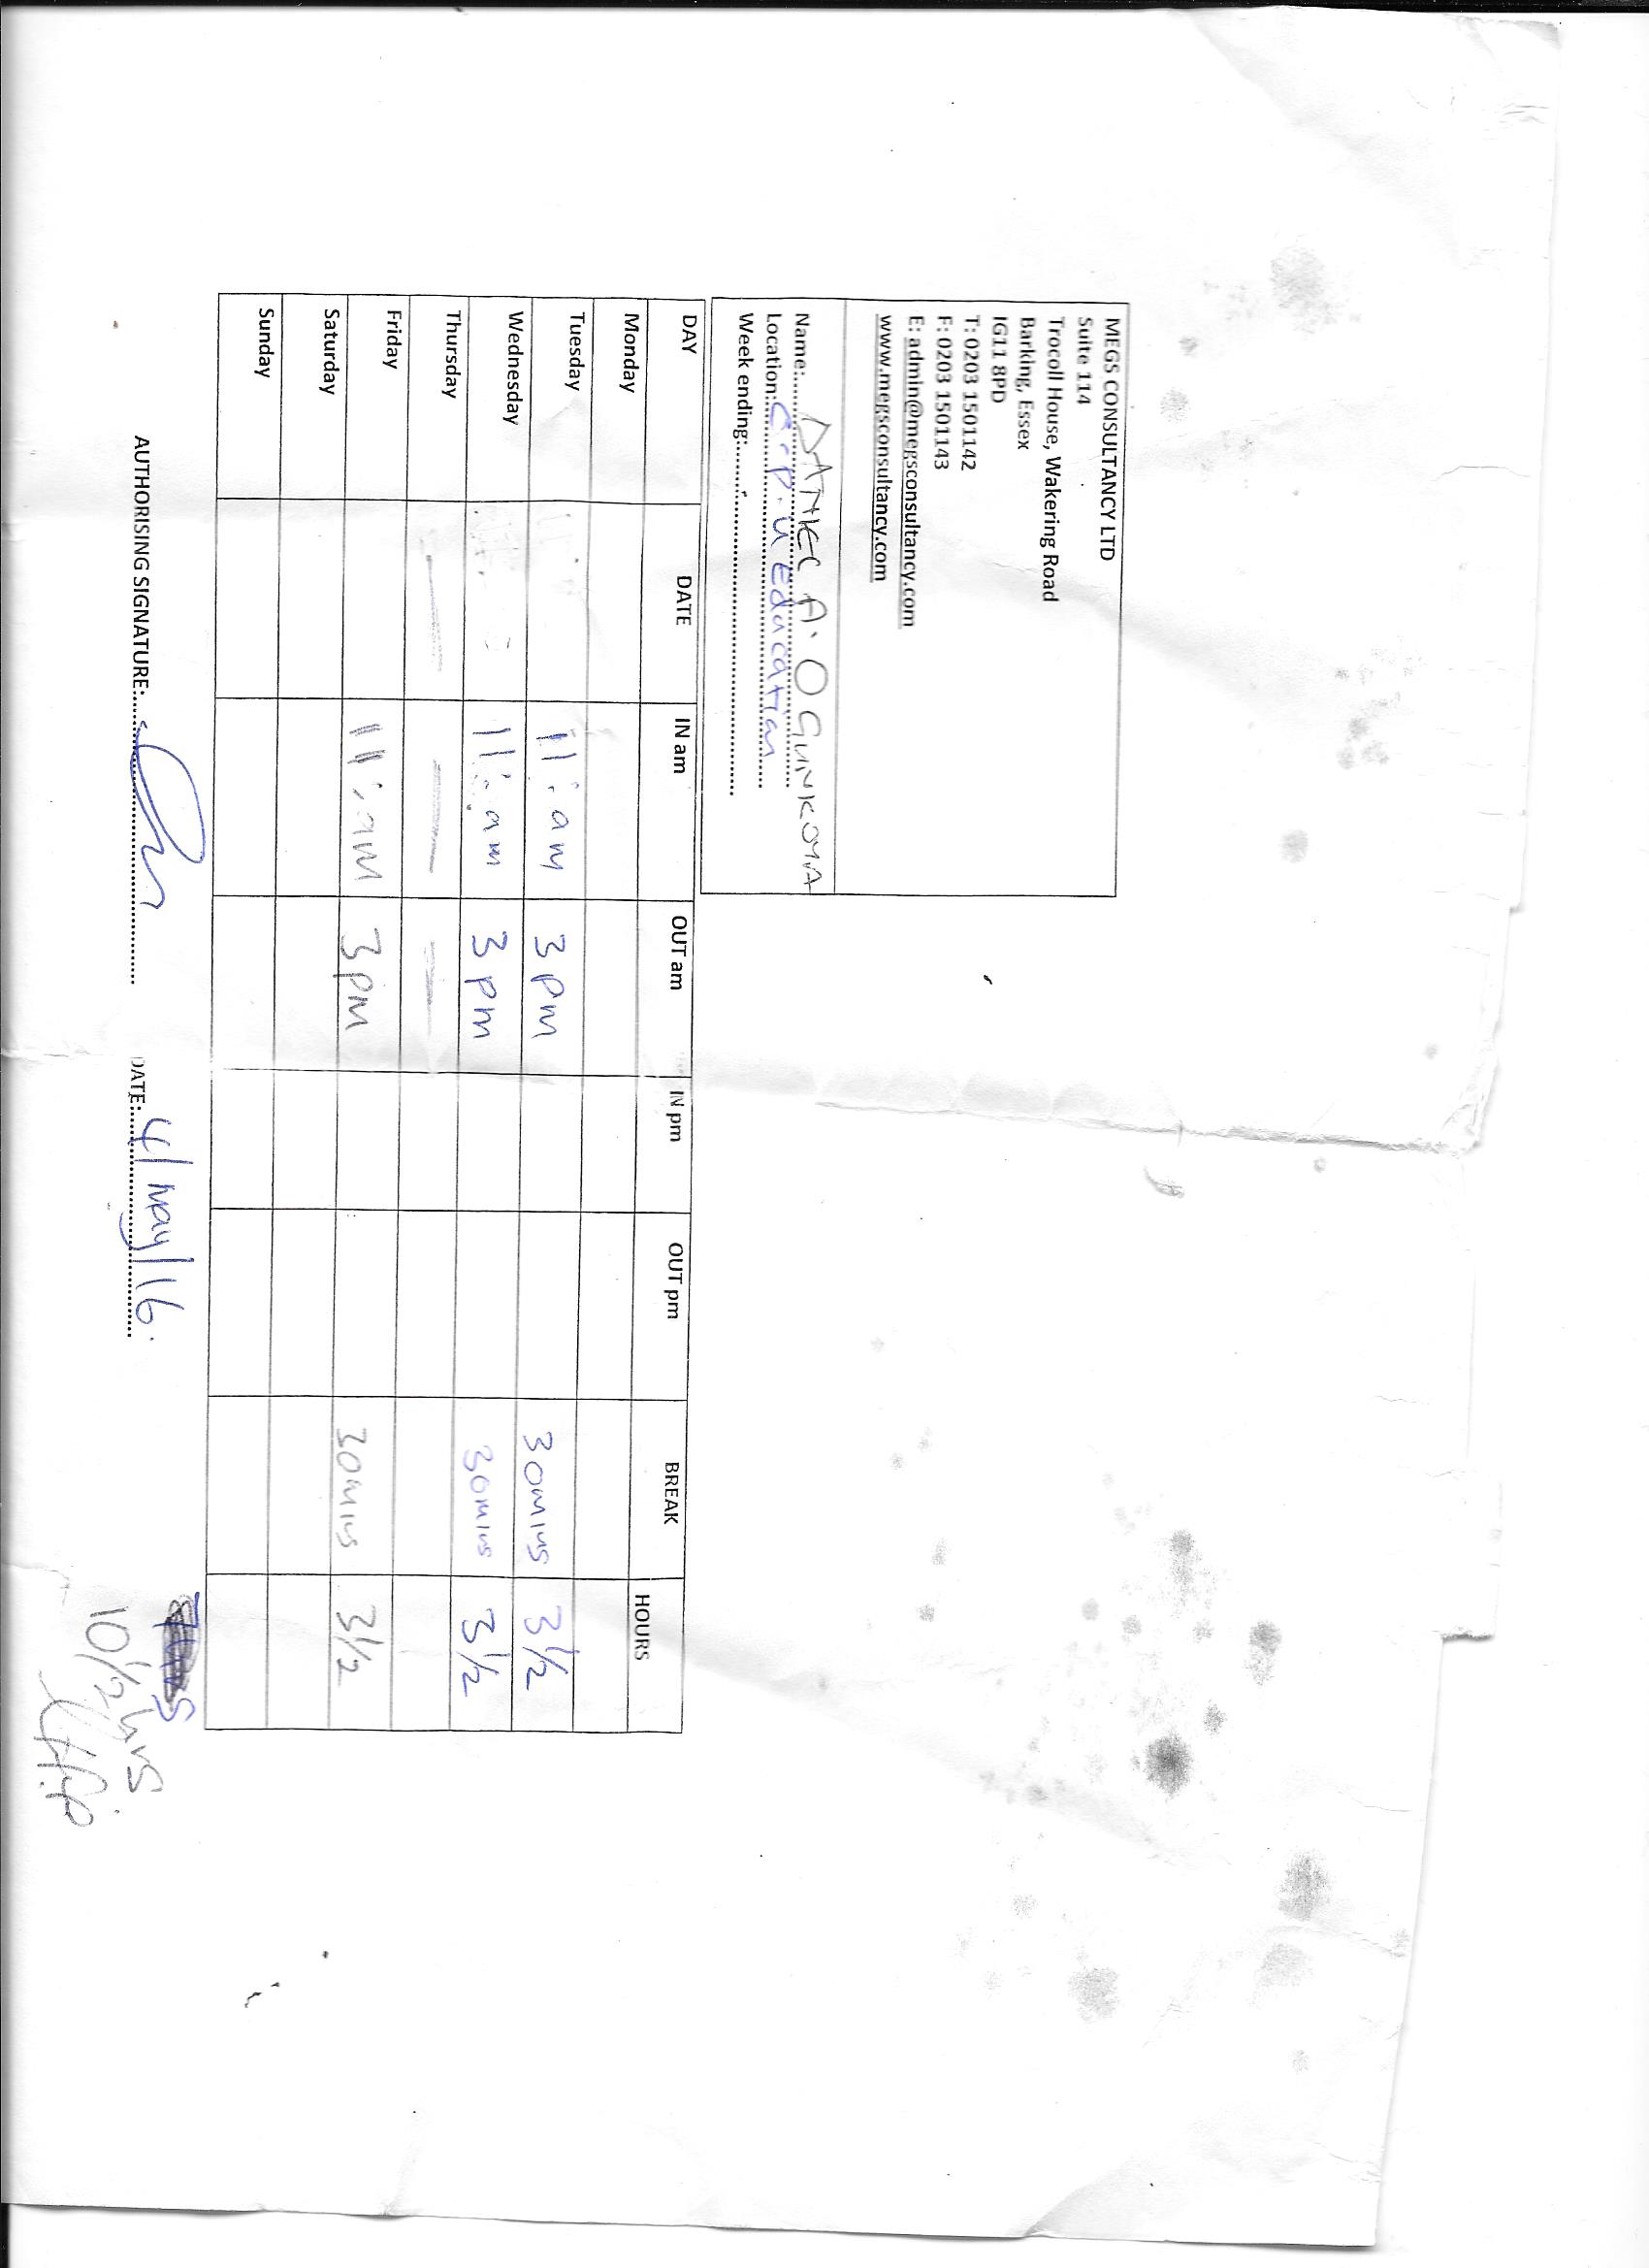 MEGS CONSULTANCY LTD
Suite 114
Trocoll House, Wakering Road
Barking, Essex
IG11 8PD
T: 0203 1501142
F: 0203 1501143
E: admin@megsconsultancy.com
www.megsconsultancy.com
Name: DANIEL A. OGUNKOYA
Location: Education
Week ending:
DAY DATE IN am OUT am IN pm OUT pm BREAK HOURS
Monday
Tuesday 11:am 3pm 30mins 3 1/2
Wednesday 11:am 3pm 30mins 3 1/2
Thursday
Friday 11:am 3pm 30mins 3 1/2
Saturday
Sunday
10 1/2 hrs
AUTHORISING SIGNATURE: DATE: 4/May/16.